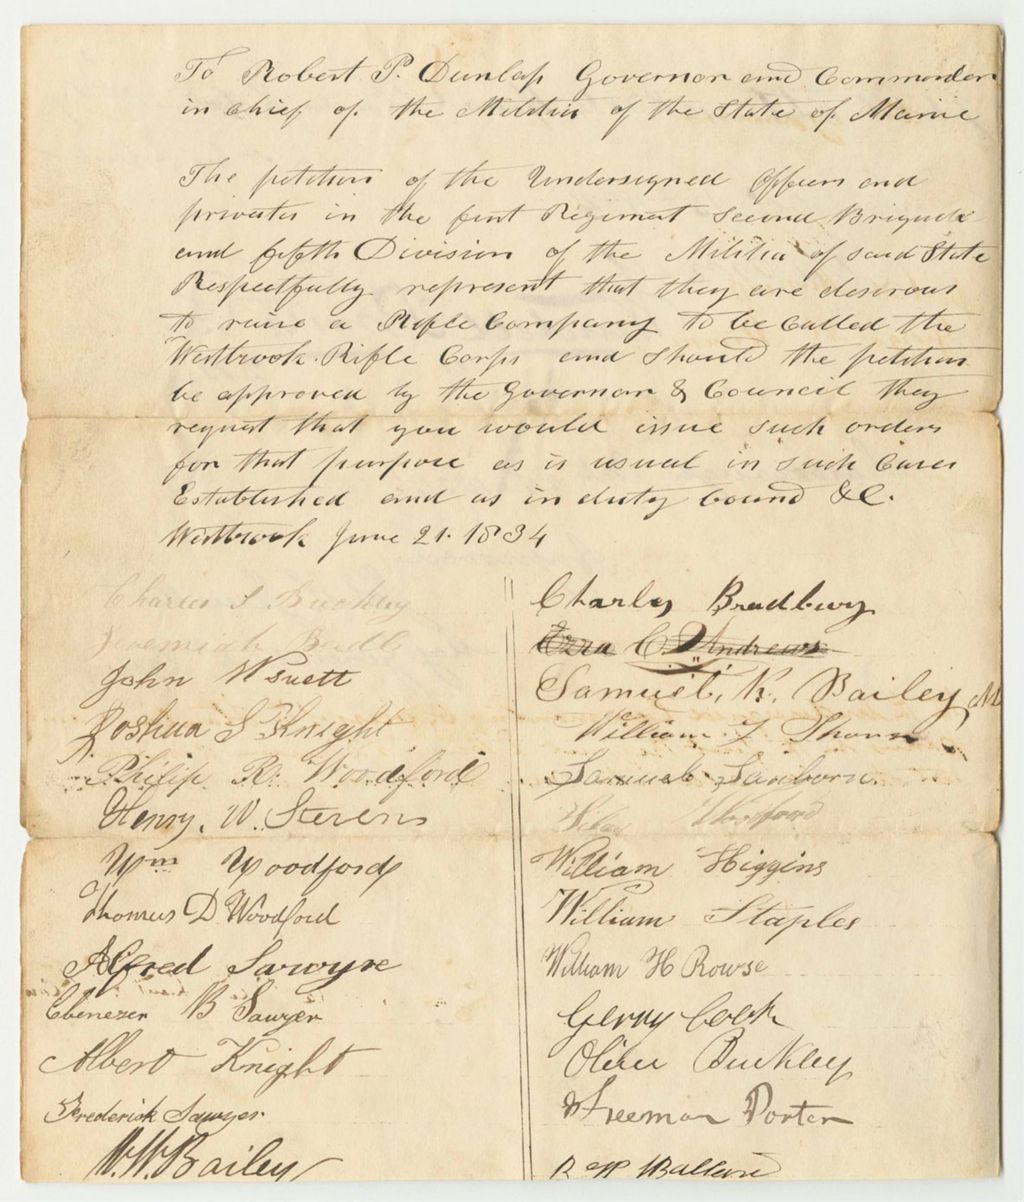 To Robert P. Dunlap Governor and Commander
in Chief of the Militia of the State of Maine
The petition of the Undersigned Officers and
privates in the first Regiment Second Brigade
and fifth Division of the Militia of said State
Respectfully represent that they are desirous
to raise a Rifle Company to be Called the
Westbrook Rifle Corps and should the petition
be approved by the Governor & Council they
request that you would issue such orders
for that purpose as is usual in such Cases
Established and as in duty bound &C.
Westbrook June 21. 1834
Charles S Buckley
Jeremiah
John W
Joshua S Knight
Philip R. Woodford
Henry. W. Stevens
Wm Woodford
Thomas D Woodford
Alfred Sawyre
Ebenezer B Sawyer
Albert Knight
Frederick Sawyer
W.W. Bailey
Charles Bradbury
Ezra C. Andrews
Samuel, K. Bailey
William
Samuel Sanborn.
William Higgins
William Staples
William H Rowse
Gerry Cook
Oliver Buckley
Freeman Porter